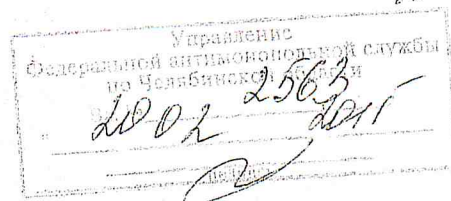 Управление
Федеральной антимонопольной службы
по Челябинской области
2563
20 02 2015
подпись